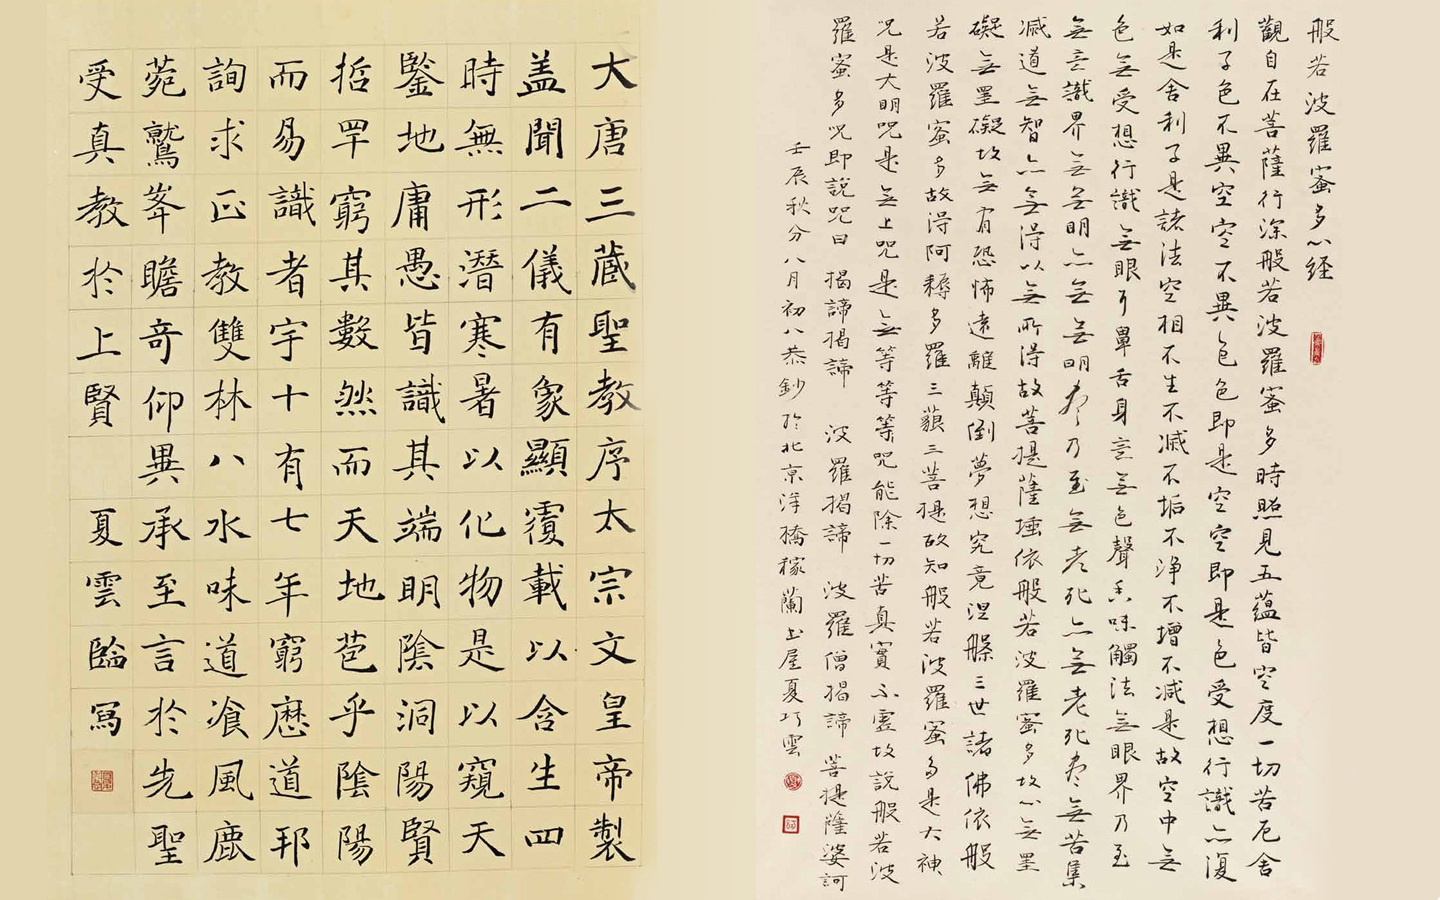 般若波羅蜜多心経
觀自在菩薩行深般若波羅蜜多時照見五蘊皆空度一切苦厄舍
利子色不異空空不異色色即是空空即是色受想行識亦復
如是舍利子是諸法空相不生不滅不垢不淨不增不減是故空中無
色無受想行識無眼耳鼻舌身意無色聲香味觸法無眼界乃至
無意識界無無明亦無無明盡乃至無老死亦無老死盡無苦集
滅道無智亦無得以無所得故菩提薩埵依般若波羅蜜多故心無罣
礙無罣礙故無有恐怖遠離顛倒夢想究竟涅槃三世諸佛依般
若波羅蜜多故得阿耨多羅三藐三菩提故知般若波羅蜜多是大神
咒是大明咒是無上咒是無等等等咒能除一切苦真實不虛故說般若波
羅蜜多咒即說咒曰 揭諦揭諦 波羅揭諦 波羅僧揭諦 菩提薩婆訶
壬辰秋分八月初八恭鈔於北京洋橋稼蘭土屋夏巧雲
大唐三藏聖教序太宗文皇帝製
盖聞二儀有象顯覆載以含生四
時無形潛寒暑以化物是以窺天
鑒地庸愚皆識其端明陰洞陽賢
哲罕窮其數然而天地苞乎陰陽
而易識者宇十有七年窮歷道邦
詢求正教雙林八水味道飡風鹿
菀鷲峯瞻奇仰異承至言於先聖
受真教於上賢 夏雲臨寫